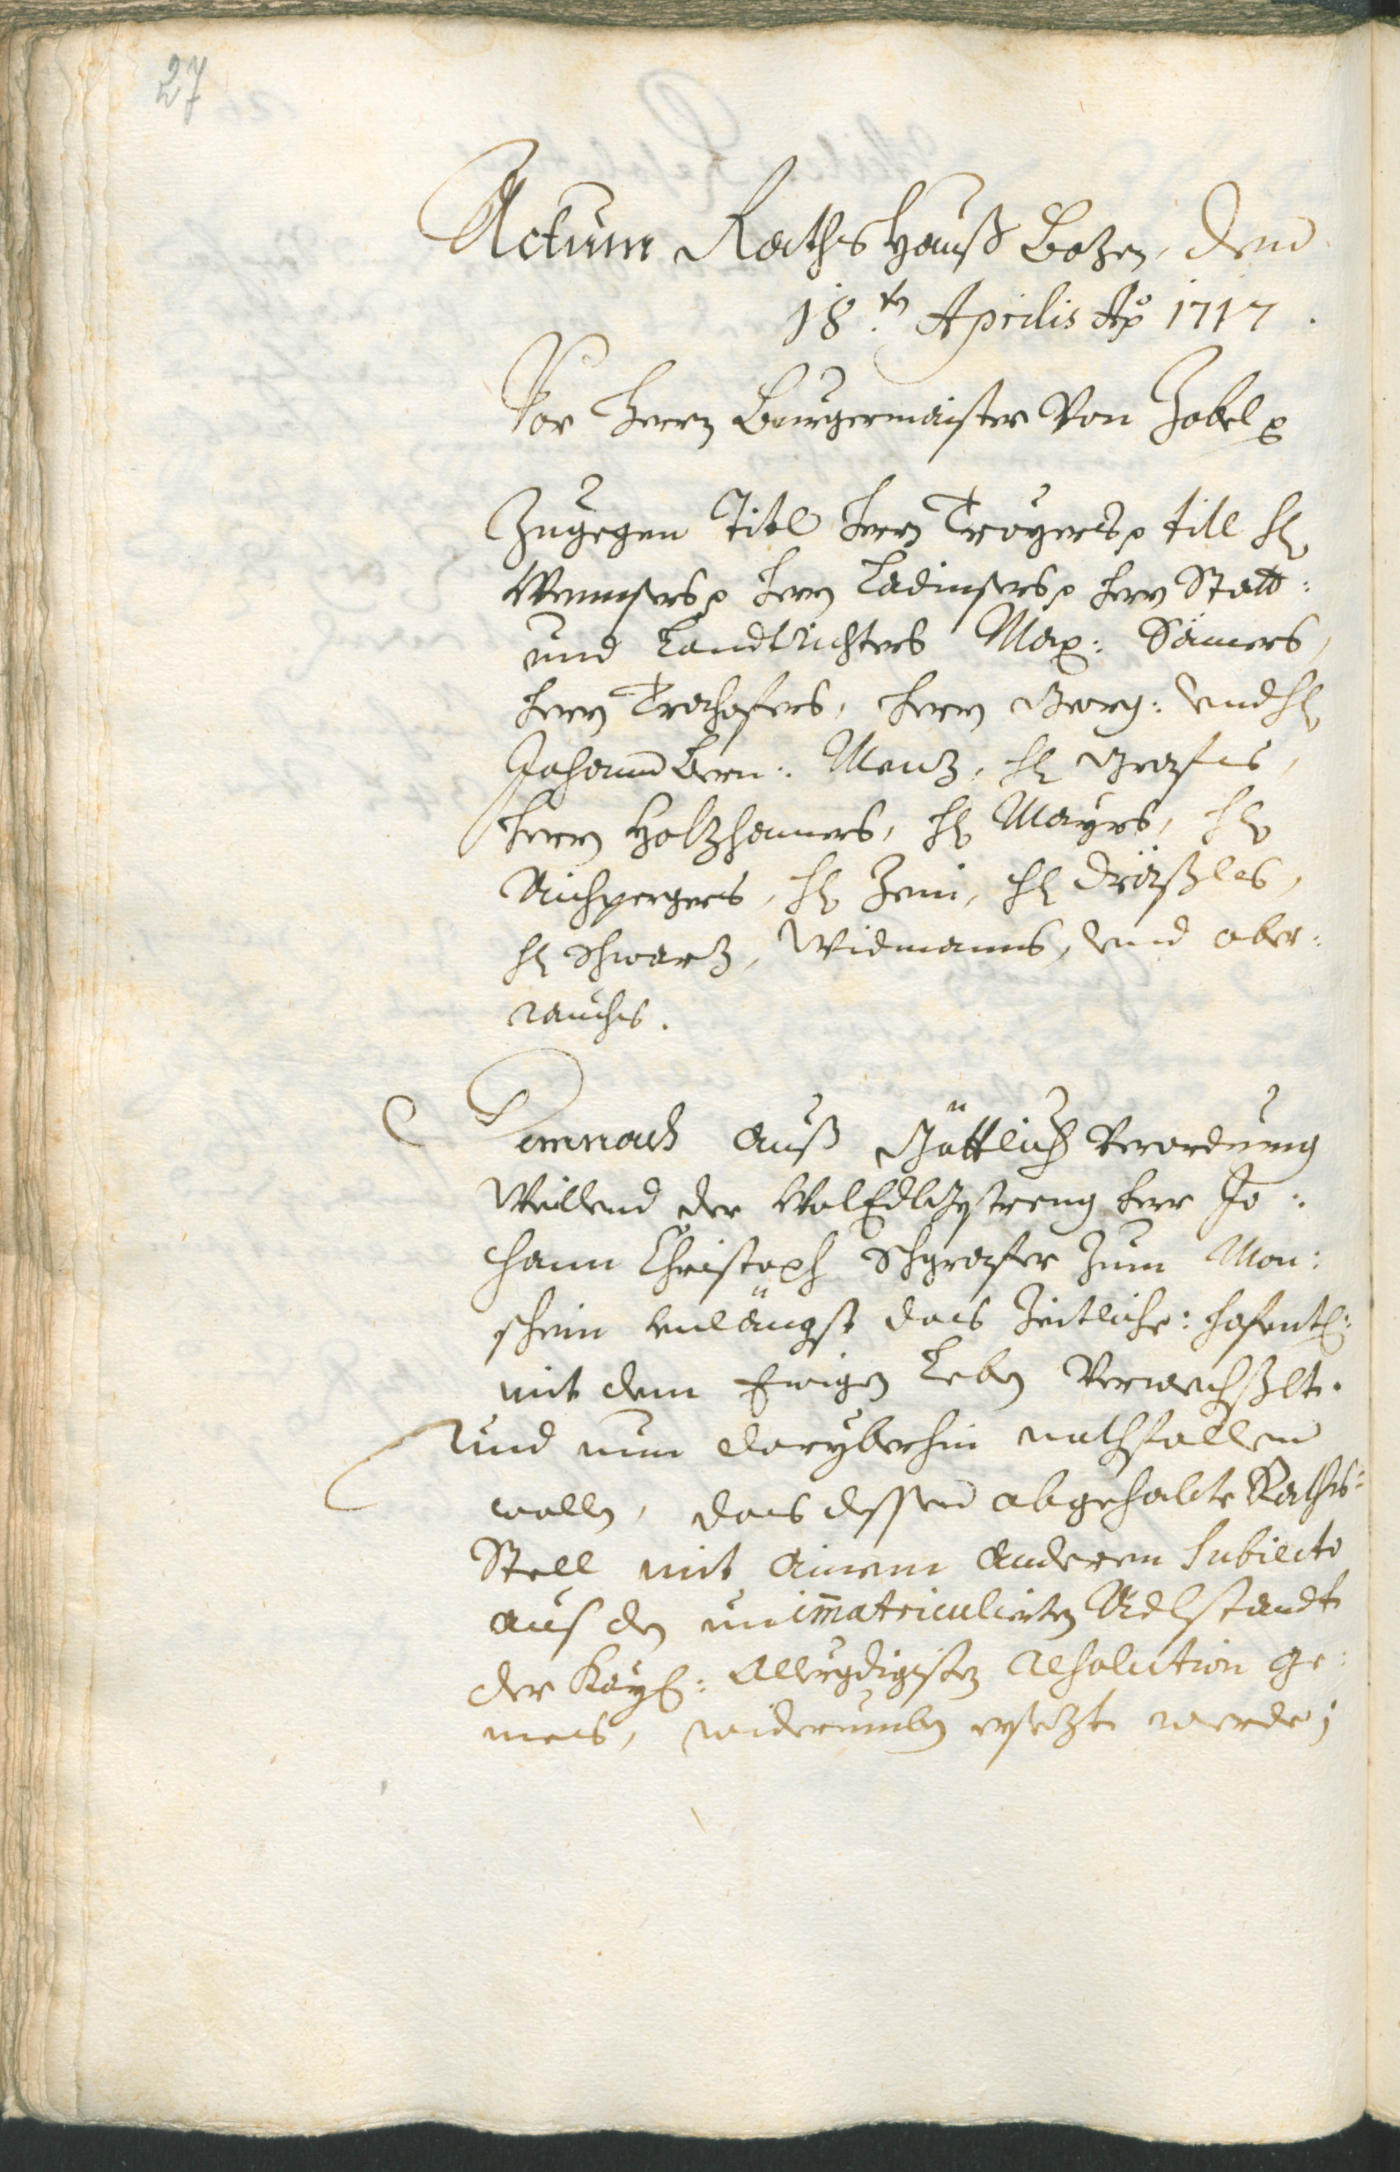 27
Actum Raths Hauß Botzen, den
18.ten Aprilis Ao 1717.
Vor Herrn Burgermaister Von Zobel p
Zugegen Titl Herrn Troyers p titl H
Wenusers p Herrn Ladinsers p Herrn Statt:
und Landtrichters Max: Sämers,
Herrn Trochofers, Herrn Georg: und H
Johann Bern: Menz, H Grafens,
Herrn Holzhamers, H Mayrs, H
Aichpergers, H Zeni, H Dräxles,
H Schwartz, Widmanns, und ober:
rauchs.
Demnach auß Göttlich Verordnung
Weillend der WolEdlGestreng Herr Jo:
hann Christoph Schgrafer zum Mon:
schein unlängst das Zeitliche: hofentl:
mit dem Ewigen Leben Verwechßlt.
Und nun daryberhin nothfallen
wollen, das dessen abgehabte Raths=
Stell mit ainem anderen Subiecto
aus den immatriculierten Adlstandt
der Kayl: Allergdigisten resolution ge:
mes, widerumben ersetzt werde;